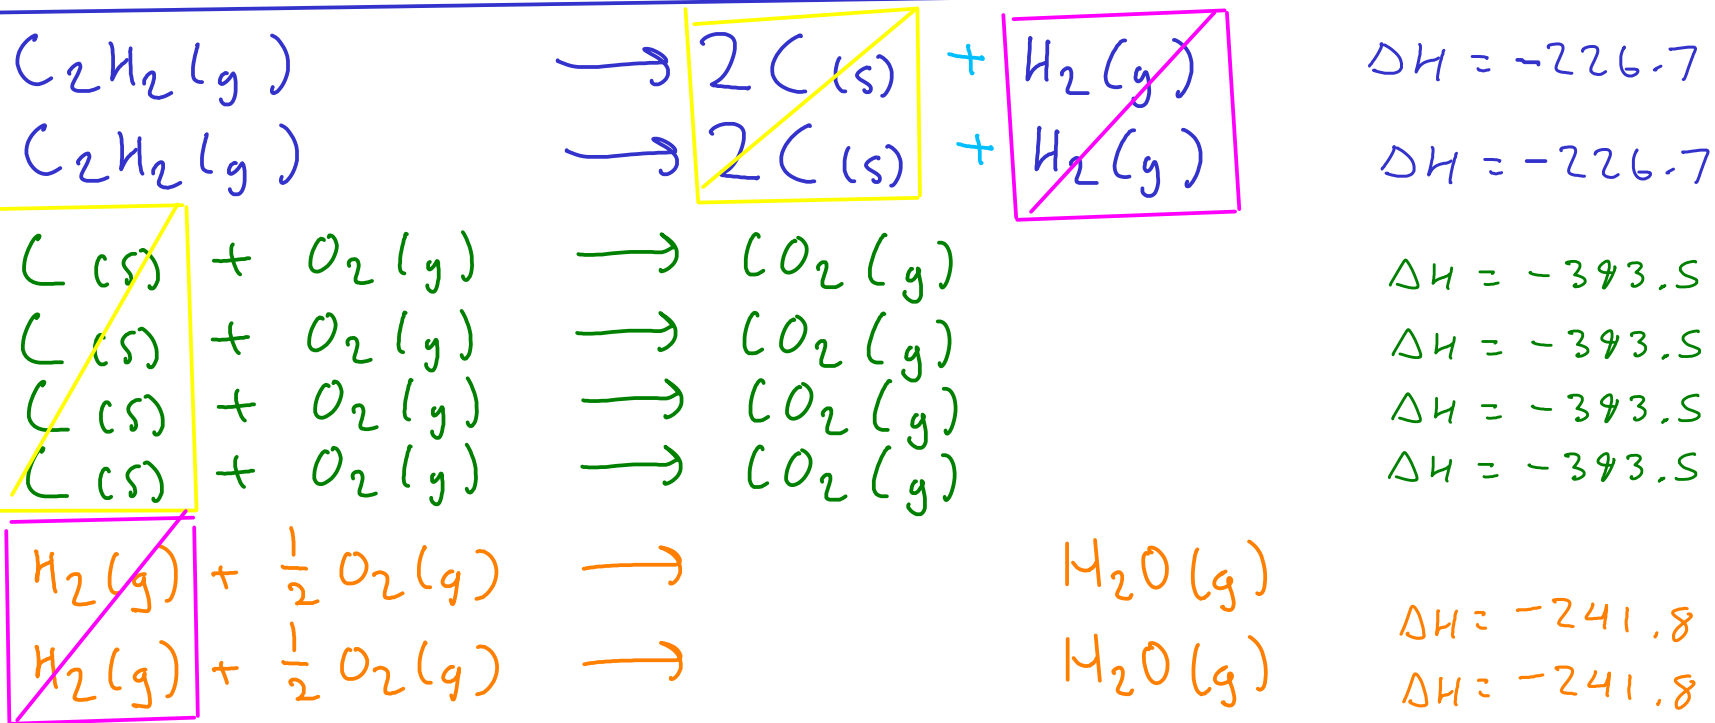 C₂H₂(g) → 2C(s) + H₂(g) ΔH = -226.7
C₂H₂(g) → 2C(s) + H₂(g) ΔH = -226.7
C(s) + O₂(g) → CO₂(g) ΔH = -393.5
C(s) + O₂(g) → CO₂(g) ΔH = -393.5
C(s) + O₂(g) → CO₂(g) ΔH = -393.5
C(s) + O₂(g) → CO₂(g) ΔH = -393.5
H₂(g) + ½ O₂(g) → H₂O(g) ΔH = -241.8
H₂(g) + ½ O₂(g) → H₂O(g) ΔH = -241.8